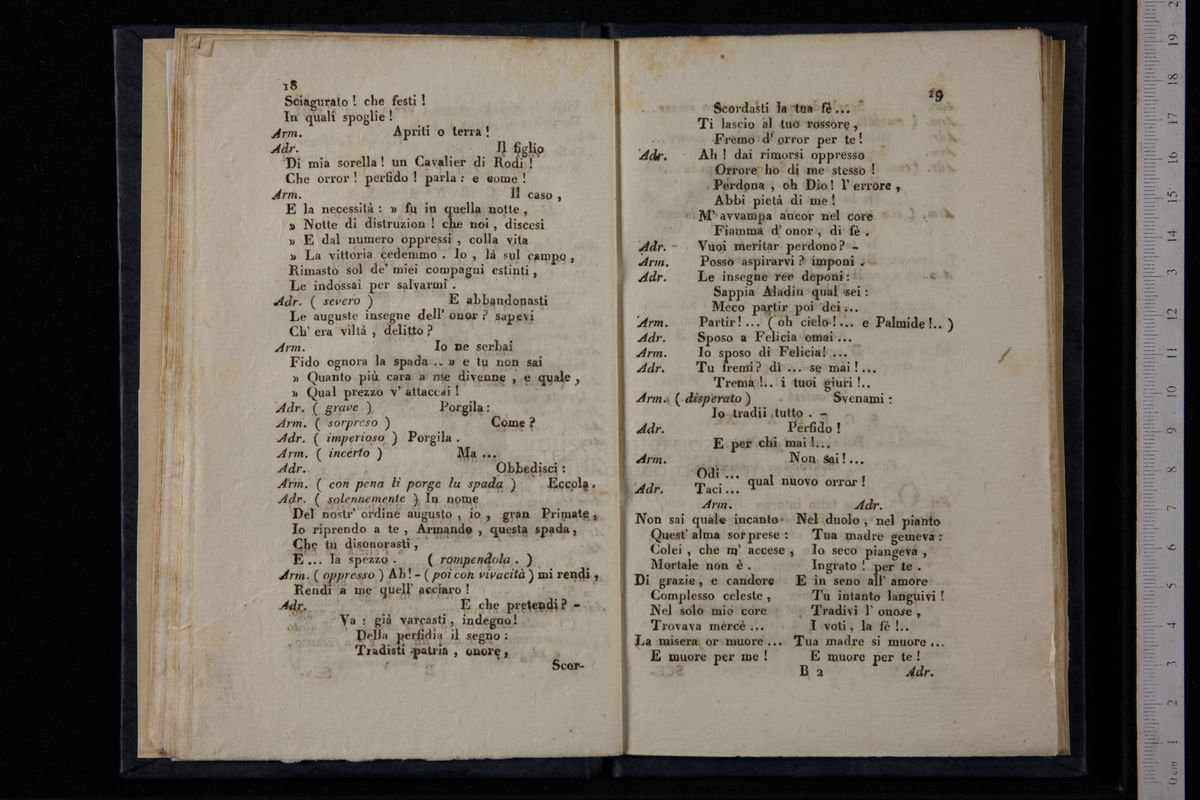 18
Sciagurato ! che festi !
In quali spoglie !
Arm. Apriti o terra !
Adr. Il figlio
Di mia sorella ! un Cavalier di Rodi !
Che orror ! perfido ! parla : e come !
Arm. Il caso ,
E la necessità : » fu in quella notte ,
» Notte di distruzion ! che noi , discesi
» E dal numero oppressi , colla vita
» La vittoria cedemmo . Io , là sul campo ,
Rimasto sol de' miei compagni estinti ,
Le indossai per salvarmi .
Adr. ( severo ) E abbandonasti
Le auguste insegne dell' onor ? sapevi
Ch' era viltà , delitto ?
Arm. Io ne serbai
Fido ognora la spada .. » e tu non sai
» Quanto più cara a me divenne , e quale ,
» Qual prezzo v' attaccai !
Adr. ( grave ) Porgila :
Arm. ( sorpreso ) Come ?
Adr. ( imperioso ) Porgila .
Arm. ( incerto ) Ma ...
Adr. Obbedisci :
Arm. ( con pena li porge la spada ) Eccola .
Adr. ( solennemente ) In nome
Del nostr' ordine augusto , io , gran Primate ,
Io riprendo a te , Armando , questa spada ,
Che tu disonorasti ,
E ... la spezzo . ( rompendola . )
Arm. ( oppresso ) Ah ! - ( poi con vivacità ) mi rendi ,
Rendi a me quell' acciaro !
Adr. E che pretendi ? -
Va : già varcasti , indegno !
Della perfidia il segno :
Tradisti patria , onore ,
Scor-
19
Scordasti la tua fè ...
Ti lascio al tuo rossore ,
Fremo d' orror per te !
Adr. Ah ! dai rimorsi oppresso
Orrore ho di me stesso !
Perdona , oh Dio ! l' errore ,
Abbi pietà di me !
M' avvampa ancor nel core
Fiamma d' onor , di fè .
Adr. Vuoi meritar perdono ? -
Arm. Posso aspirarvi ? imponi .
Adr. Le insegne ree deponi :
Sappia Aladin qual sei :
Meco partir poi dei ...
Arm. Partir ! ... ( oh cielo ! ... e Palmide ! .. )
Adr. Sposo a Felicia omai ...
Arm. Io sposo di Felicia ! ...
Adr. Tu fremi ? dì ... se mai ! ...
Trema ! .. i tuoi giuri ! ..
Arm. ( disperato ) Svenami :
Io tradii tutto . -
Adr. Perfido !
E per chi mai ! ...
Arm. Non sai ! ...
Odi ...
Adr. Taci ... qual nuovo orror !
Arm. Adr.
Non sai quale incanto Nel duolo , nel pianto
Quest' alma sorprese : Tua madre gemeva :
Colei , che m' accese , Io seco piangeva ,
Mortale non è . Ingrato ! per te .
Di grazie , e candore E in seno all' amore
Complesso celeste , Tu intanto languivi !
Nel solo mio core Tradivi l' onore ,
Trovava mercè ... I voti , la fè ! ..
La misera or muore ... Tua madre si muore ...
E muore per me ! E muore per te !
B 2 Adr.